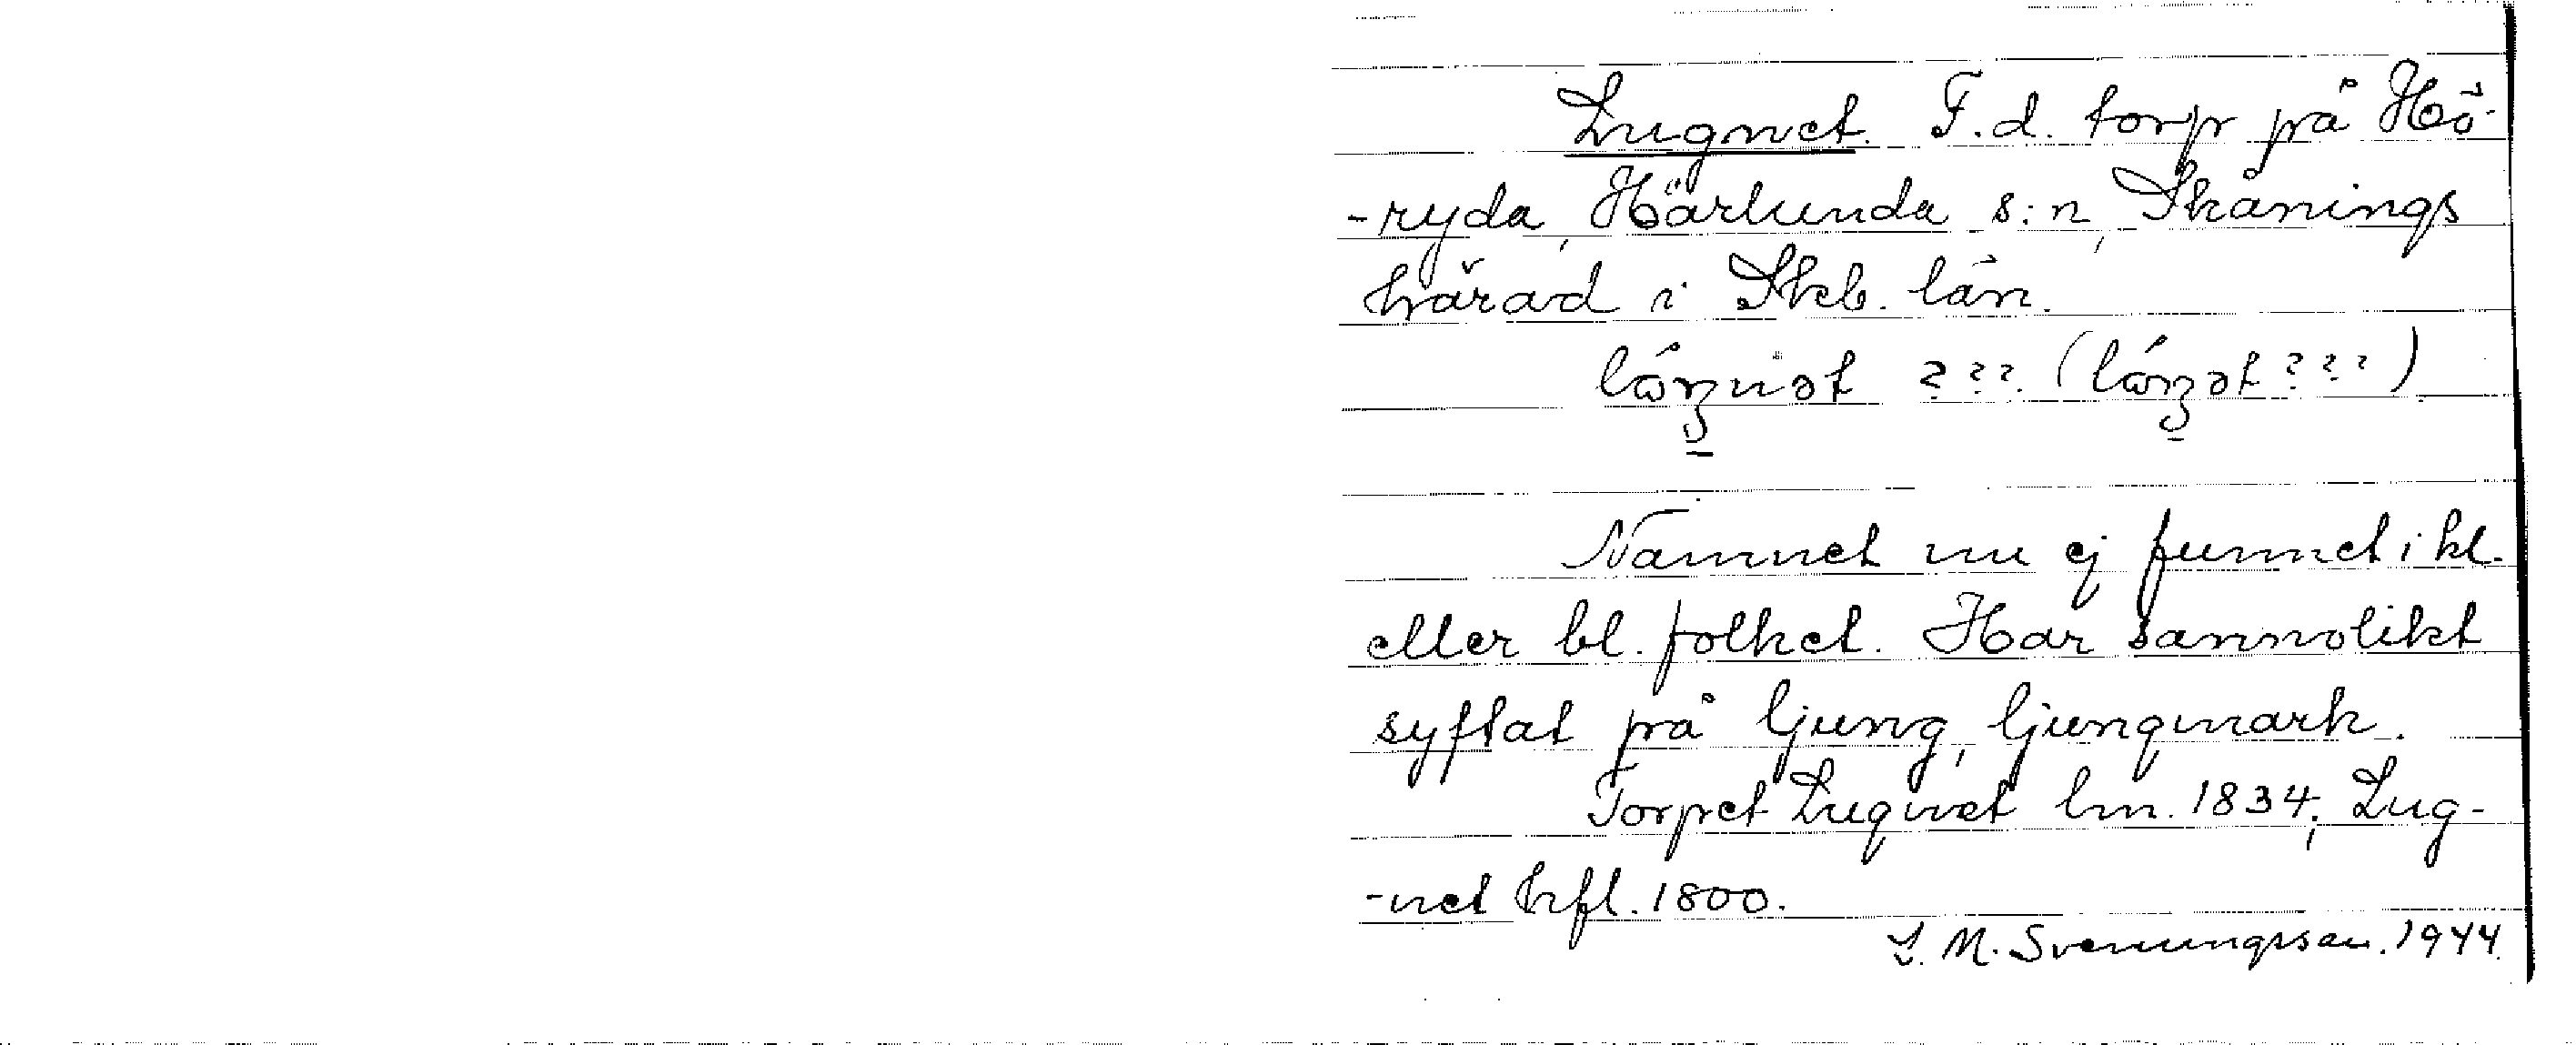 Lugnet. F.d. torp på Hö-
-ryda, Härlunda s:n, Skånings
härad i Skb. län.
??? ( ???)
Namnet nu ej funnet i kl.
eller bl. folket. Har sannolikt
syftat på ljung, ljungmark.
Torpet Lugnet lm. 1834; Lug-
-net hfl. 1800.
L. M. Svenungsson. 1944.